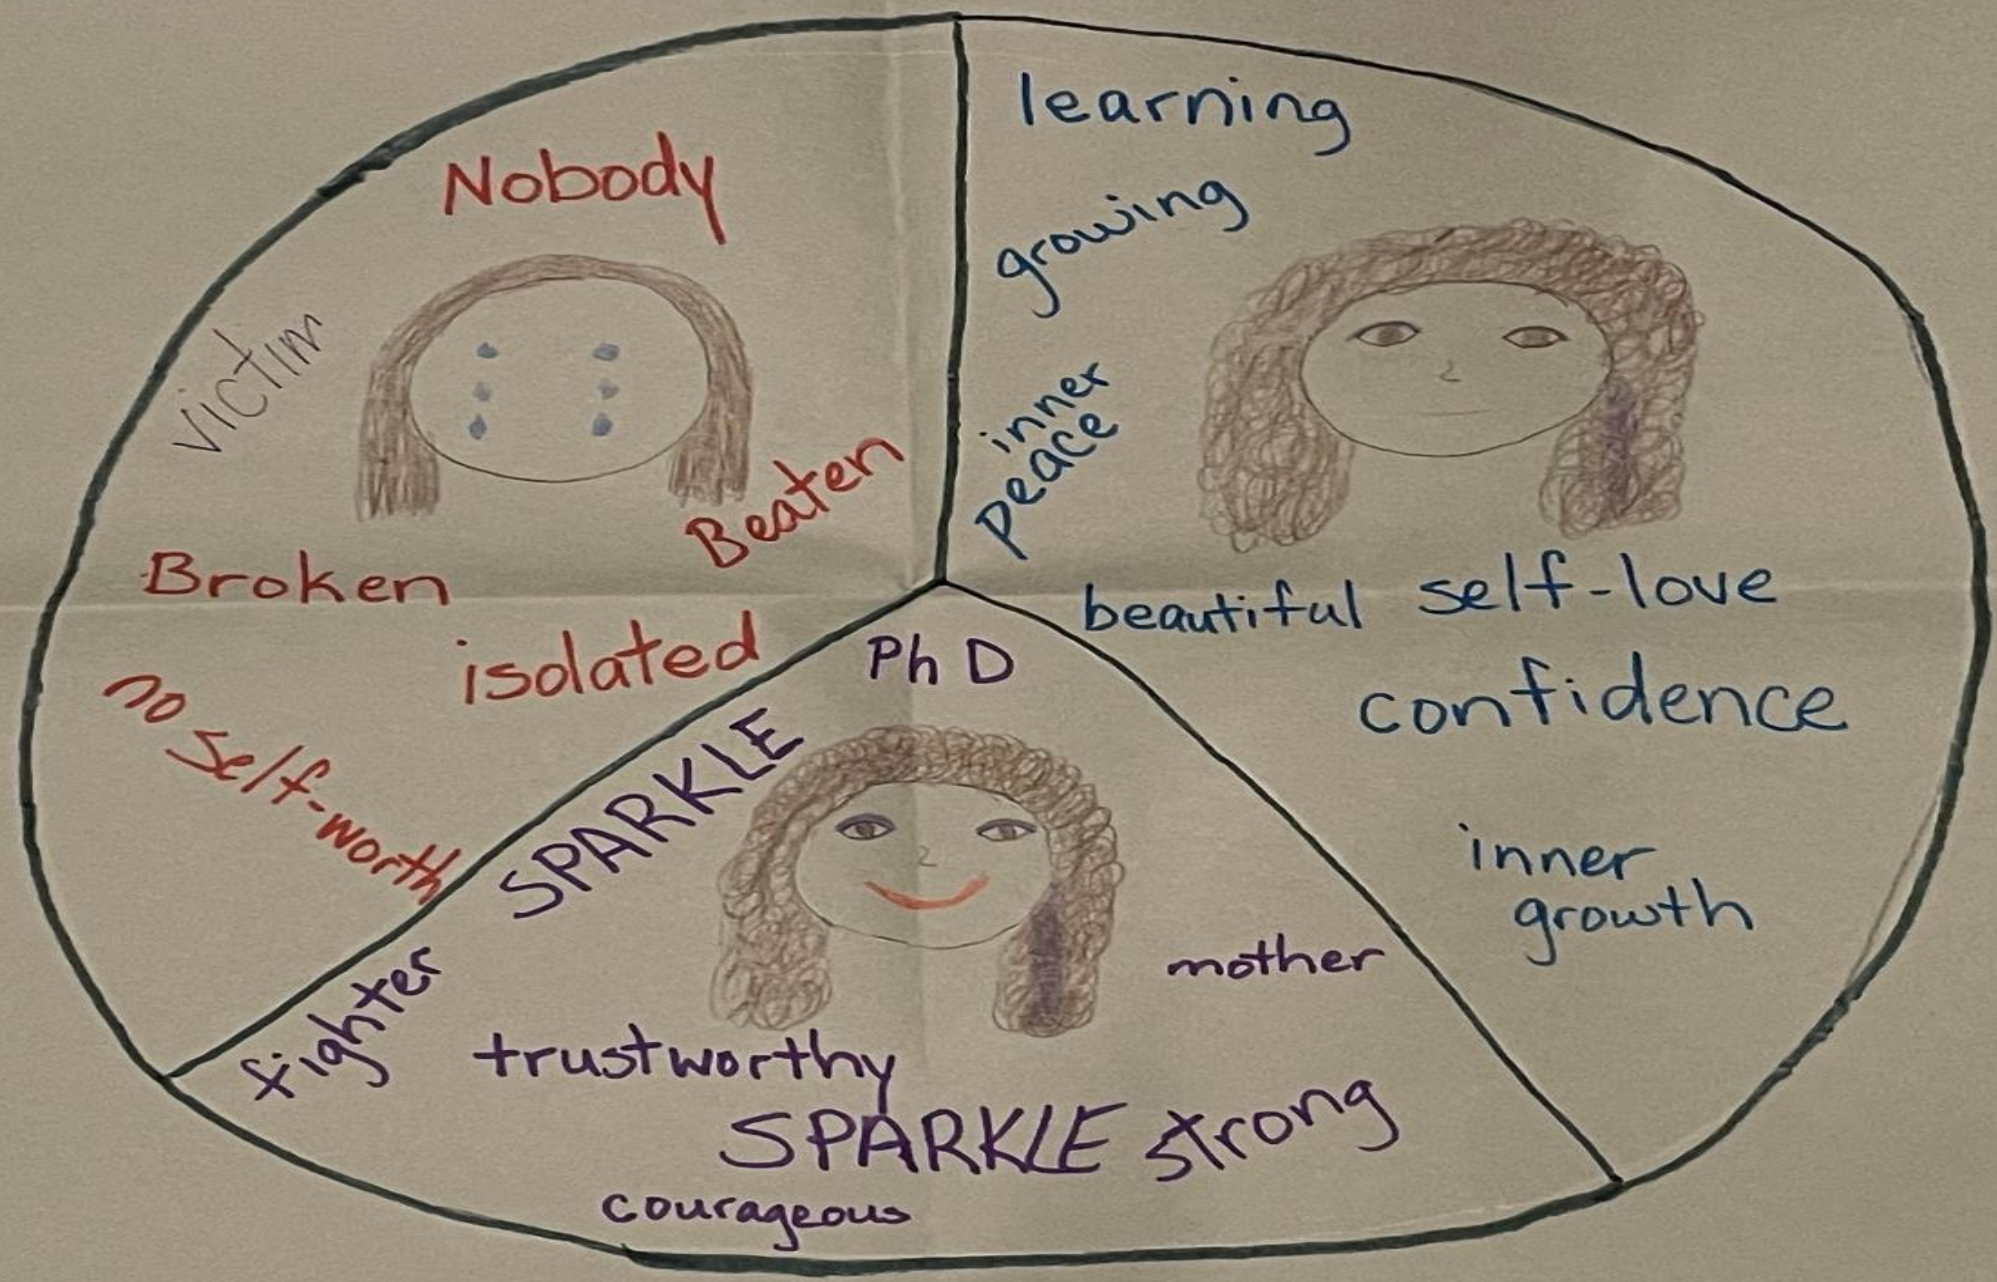 Nobody
victim
Beaten
Broken
isolated
no self-worth
learning
growing
inner
peace
beautiful self-love
confidence
inner
growth
PhD
SPARKLE
mother
fighter
trustworthy
SPARKLE strong
courageous